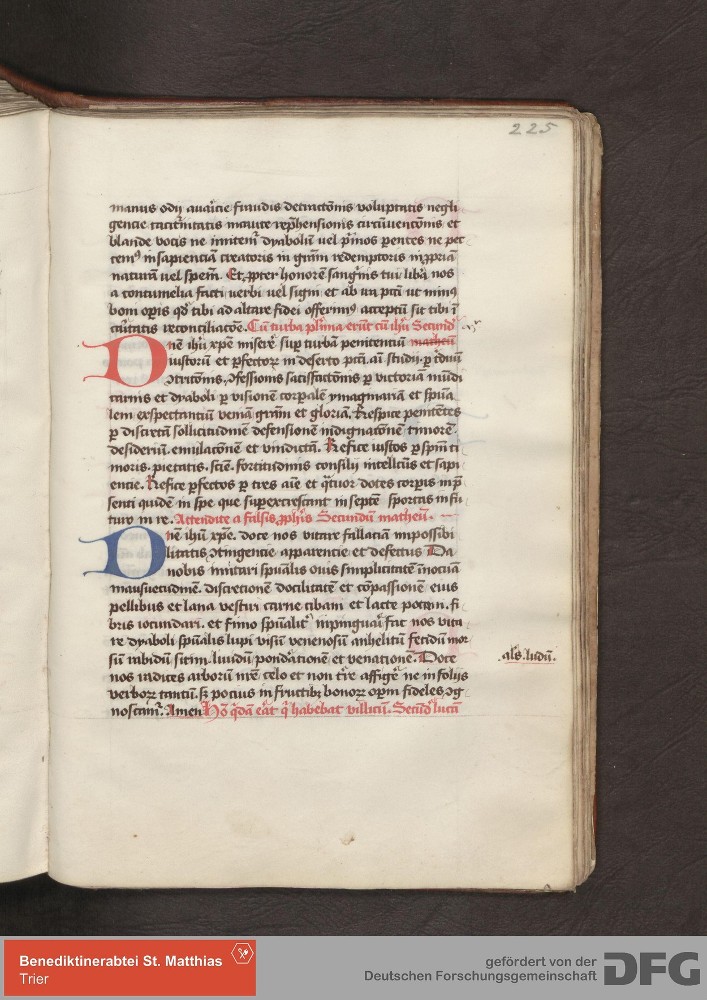 225
manus odij auaricie fraudis detractõnis voluptatis negli
gencie taciturnitatis incaute repḣensionis circũuencõnis et
blande vocis ne imitemˀ dyabolũ uel p̃mos parentes ne pec
temꝰ in sapienciam creatoris in grãm redemptoris in ꝓpriam
naturã uel spem̃. Et ꝓpter honorẽ sangˀinis tui liberˀa nos
a contumelia facti uerbi uel signi et ab ira
boni oꝑis qđ tibi ad altare fidei offerimꝰ acceptũ sit tibi ĩ
caritatis reconciliacõe. Cũ turba pl̃ima eẽt cũ ihũ Secund̃
Dñe ihũ xp̃e miserẽ suꝑ turbã penitenciũ matheũ
iustorũ et ꝑfectoꝝ in deserto pct̃i. studij. ꝑ tˀduũ
ꝯtricõnis, ꝯfessionis satisfactõnis ꝑ victoriã mũdi
carnis et dyaboli ꝑ visionẽ corꝑalẽ ymaginariã et spũa
lem exspectantiũ veniã grãm et gloriã. Respice penitẽtes
ꝑ discretã sollicitudinẽ defensionẽ indignatõnẽ timorẽ.
desideriũ. emulatõnẽ et vindictã. Refice iustos ꝑ spm̃ ti
moris. pietatis. scie. fortitudinis consilij intellcũs et sapi
encie. Refice ꝑfectos ꝑ tres aĩe et qˀtuor dotes corꝑis in p̃
senti quidẽ in spe que suꝑexcrescant in septẽ sportas in fu
turo in re. Attendite a falsis ꝓph̃is Secundũ matheũ.
Dñe ihũ xp̃e. doce nos vitare fallaciã impossibi
litatis ꝯtingencie apparencie et defectus Da
nobis imitari spũalis ouis simplicitatẽ
mansuetudinẽ. discretionẽ docilitatẽ et cõpassionẽ eius
pellibus et lana vestiri carne cibari et lacte potari. fi
bris iocundari. et fimo spũalitˀ inpinguari fac nos vita
re dyaboli spũalis lupi visũ venenosũ anhelitũ fetidũ mor
sũ rabidũ sitim. liuidũ et venationẽ. Doce
als. ludũ.
nos radices arborũ nrẽ celo et non tˀre affigˀe ne in folijs
verboꝝ tantũ. sꝫ pocius in fructibꝫ bonoꝝ oꝑm fideles ꝯg
noscamˀ. Amen Hõ qˀdã eˀat qˀ habebat villicũ. Secundˀ lucã
Benediktinerabtei St. Matthias
Trier
gefördert von der
Deutschen Forschungsgemeinschaft
DFG